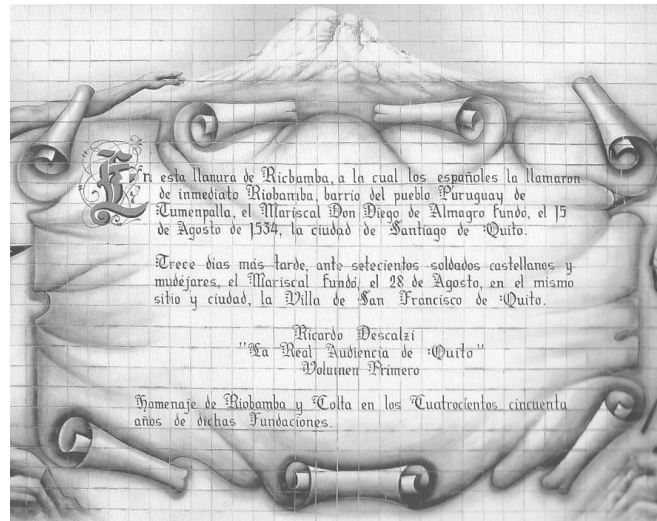 En esta llanura de Ricbamba, a la cual los españoles la llamaron
de inmediato Riobamba, barrio del pueblo Puruguay de
Tumenpalla, el Mariscal Don Diego de Almagro fundó, el 15
de Agosto de 1534, la ciudad de Santiago de Quito.
Trece dias más tarde, ante setecientos soldados castellanos y
mudéjares, el Mariscal fundó, el 28 de Agosto, en el mismo
sitio y ciudad, la Villa de San Francisco de Quito.
Ricardo Descalzi
"La Real Audiencia de Quito"
Volumen Primero
Homenaje de Riobamba y Colta en los Cuatrocientos cincuenta
años de dichas Fundaciones.